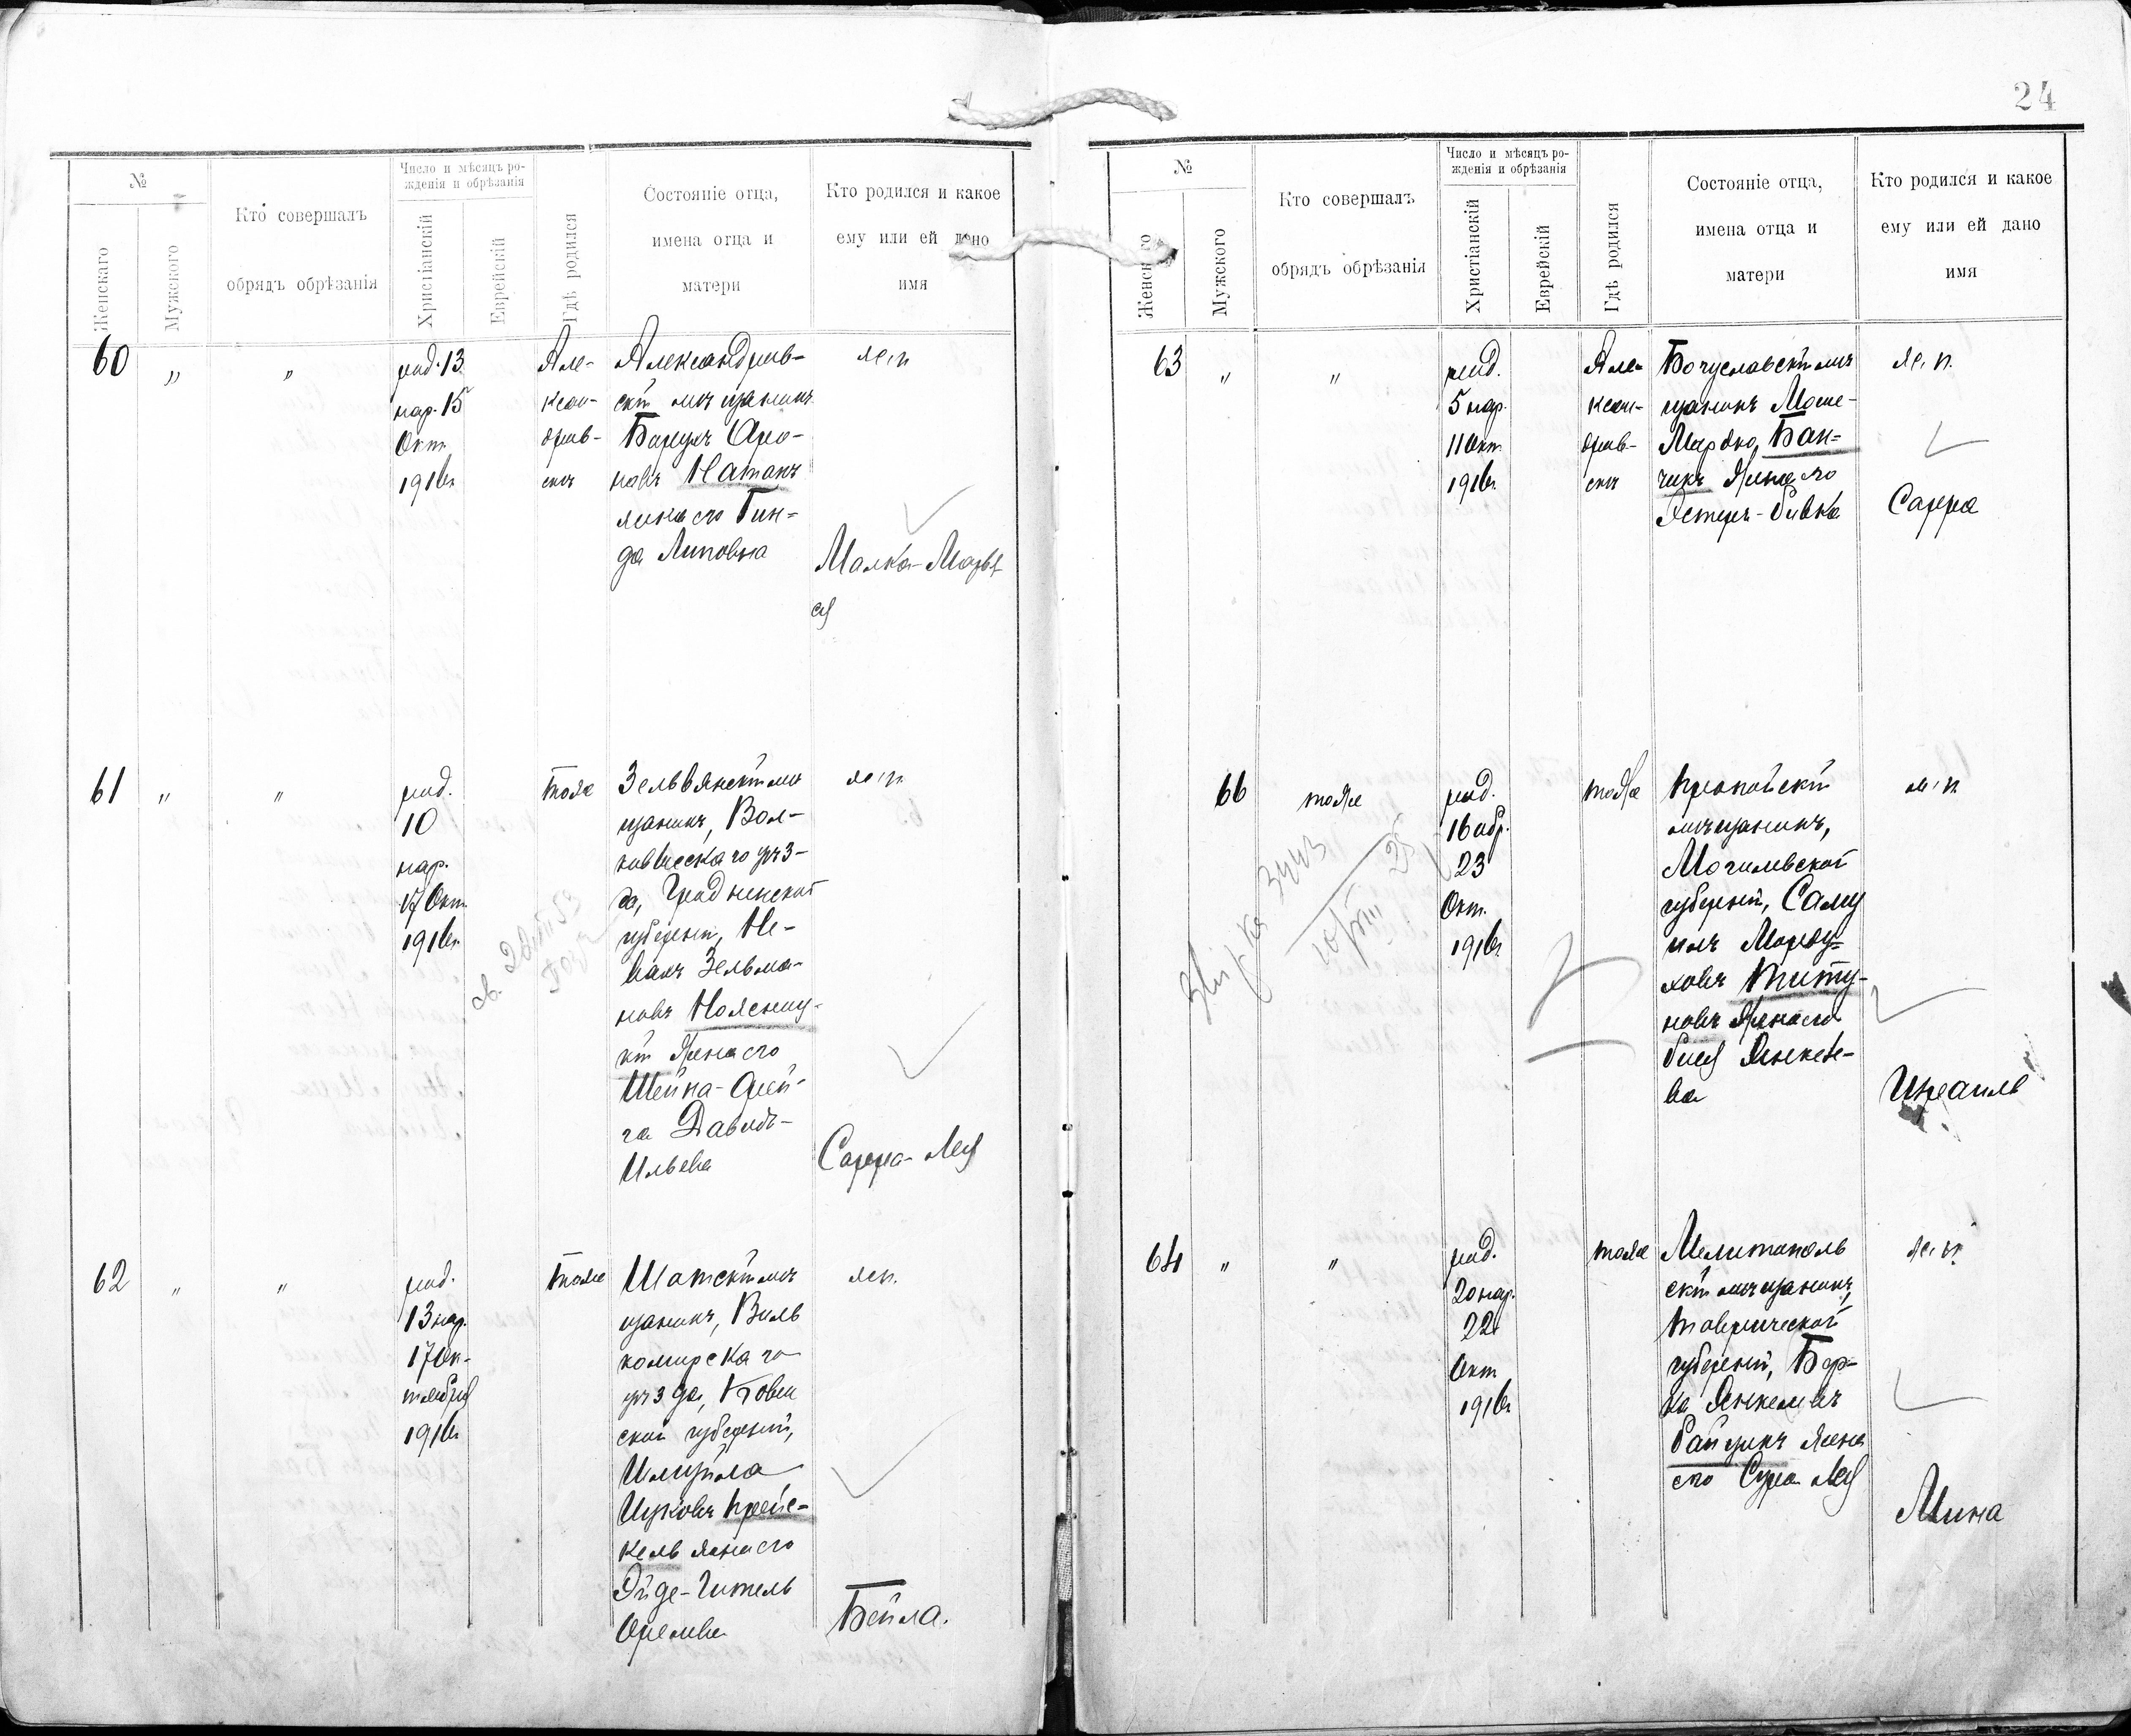 24
№
Женскаго
Мужского
Кто совершалъ
обрядъ обрѣзанія
Число и мѣсяцъ ро-
жденія и обрѣзанія
Христіанскій
Еврейскій
Гдѣ родился
Состояніе отца,
имена отца и
матери
Кто родился и какое
ему или ей дано
имя
60
"
"
род. 13
нар. 15
Окт.
1916г.
Але-
ксан-
дров-
скъ
Александров-
скій мѣщанинъ
Борухъ Аро-
новъ Натанъ
жена его Гин-
да Липовна
ж. п.
Малка-Марья
61
"
"
род.
10
нар.
17 Окт.
1916г.
тоже
Зельвянскій мѣ
щанинъ, Вол-
ковисскаго уѣз-
да, Гродненской
губерніи,
Зельма-
новъ
жена его
Шейна-Фрей-
да Давидъ-
Ильева
ж. п.
Сарра-Лея
62
"
"
род.
13 нар.
17 Ок-
тября
1916г.
тоже
Шатскій мѣ
щанинъ, Виль
комирскаго
уѣзда, Ковен
ской губерніи,
Шмуйла
Ицковъ Крейс-
кель жена его
Эйде-Гитель
ж. п.
Бейла.
№
Женскаго
Мужского
Кто совершалъ
обрядъ обрѣзанія
Число и мѣсяцъ ро-
жденія и обрѣзанія
Христіанскій
Еврейскій
Гдѣ родился
Состояніе отца,
имена отца и
матери
Кто родился и какое
ему или ей дано
имя
63
"
"
род.
5 нар.
11 Окт.
1916г.
Але-
ксан-
дров-
скъ
Богуславскій мѣ
щанинъ Моше-
Мардко, Бан-
чикъ Жена его
Эстеръ-Ривка
ж. п.
Сарра
66
тоже
род.
16 обр.
23
Окт.
1916г.
тоже
Пропойскій
мѣщанинъ,
Могилевской
губерніи, Саму
илъ Морду-
ховъ Титу-
новъ Жена его
Янкеле-
ва
м. п.
Израиль
64
"
"
род.
20 нар.
22
Окт.
1916г.
тоже
Мелитополь
скій мѣщанинъ,
Таврической
губерніи, Бер-
ка Янкелевъ
жена
его Сура Лея
ж. п.
Мина